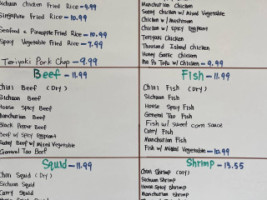 Sichuan Chicken Fried Rice - 9.99
Singapore Fried Rice - 10.99
Seafood & Pineapple Fried Rice - 10.99
Spicy Vegetable Fried Rice - 7.99
Teriyaki Pork Chop - 9.99
Manchurian Chicken
Sweet Chicken w/ Mixed Vegetable
Chicken w/ Mushroom
Chicken w/ Spicy Eggplant
Teriyaki Chicken
Thousand Island Chicken
Honey Garlic Chicken
Ma Po Tofu w/ Chicken - 9.99
Beef - 11.99
Chilli Beef (Dry)
Sichuan Beef
House Spicy Beef
Manchurian Beef
Black Pepper Beef
Beef w/ Spicy Eggplant
Beef w/ Mixed Vegetable
General Tao Beef
Fish - 11.99
Chilli Fish (Dry)
Sichuan Fish
House Spicy Fish
General Tao Fish
Fish w/ sweet corn sauce
Curry Fish
Manchurian Fish
Fish w/ Mixed Vegetable - 10.99
Squid - 11.99
Chilli Squid (Dry)
Sichuan Squid
Curry Squid
Shrimp - 13.55
Chilli Shrimp (Dry)
Sichuan Shrimp
House Spicy Shrimp
Manchurian Shrimp